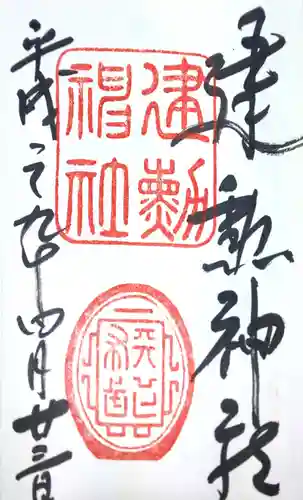 建勲神社
建勲神社
平成二九年四月廿三日